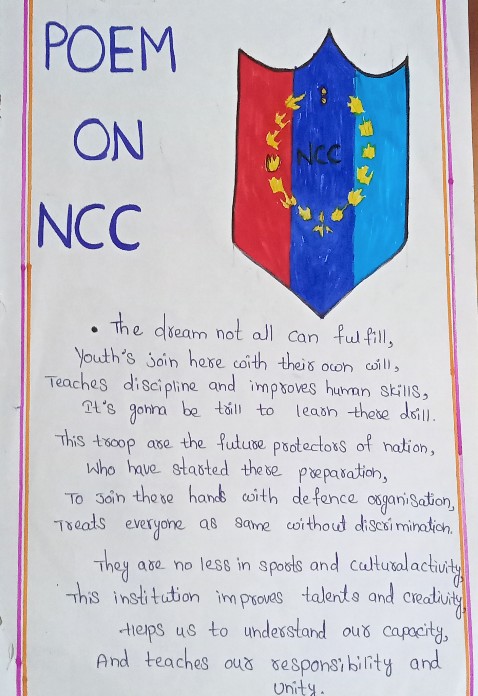 POEM
ON
NCC
NCC
• The dream not all can fulfill,
Youth's join here with their own will,
Teaches discipline and improves human skills,
It's gonna be till to learn there drill.
This troop are the future protectors of nation,
Who have started there preparation,
To join there hands with defence organisation,
Treats everyone as same without discrimination.
They are no less in sports and cultural activity,
This institution improves talents and creativity,
Helps us to understand our capacity,
And teaches our responsibility and
unity.